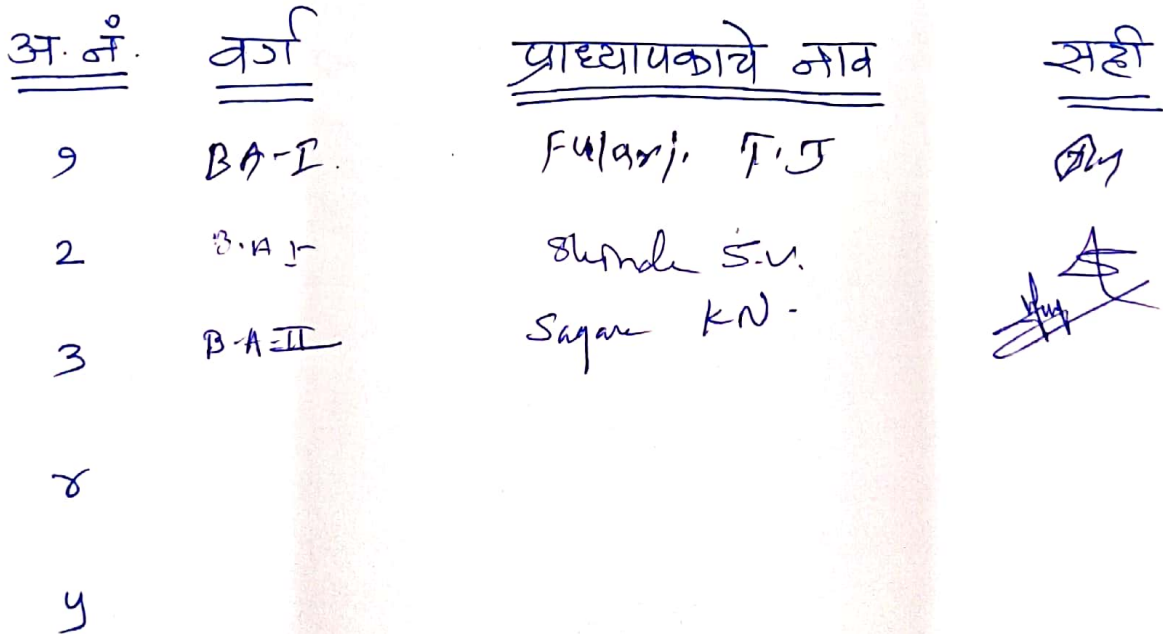 अ. नं. वर्ग प्राध्यापकाचे नाव सही
१ BA-I. Fulari. T.J
२ B.A I Shinde S.V.
३ B-A-II Sagare KN-
४
५